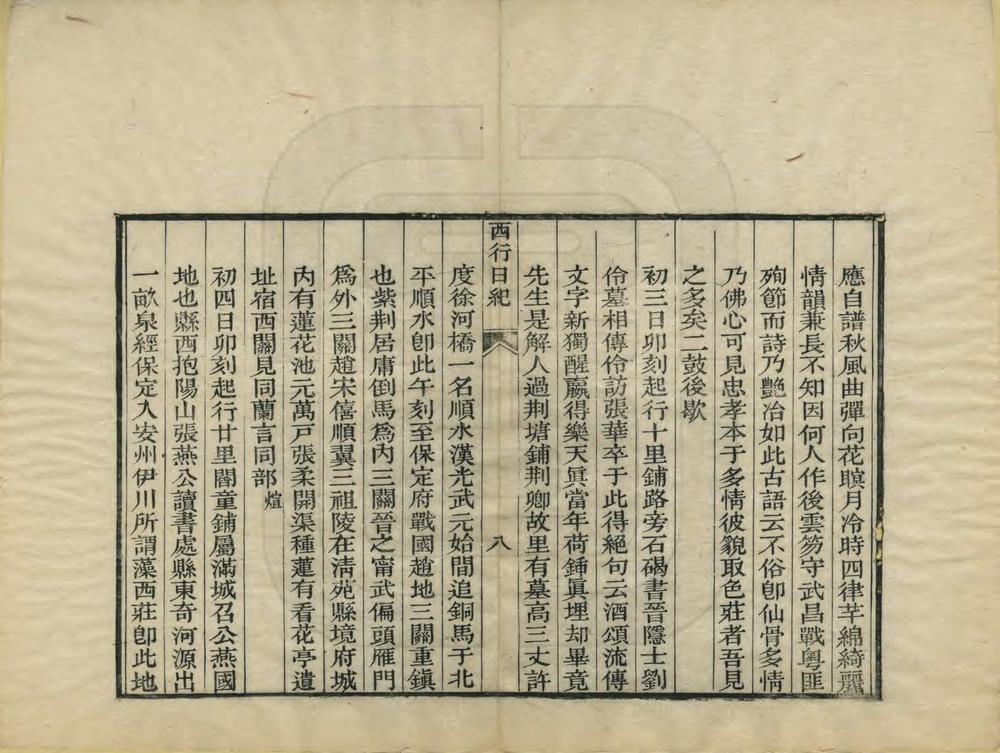 應自譜秋風曲彈向花瞑月冷時四律芊綿綺麗
情韻兼長不知因何人作後雲笏守武昌戰粵匪
殉節而詩乃艷冶如此古語云不俗卽仙骨多情
乃佛心可見忠孝本于多情彼貌取色莊者吾見
之多矣二鼓後歇
初三日卯刻起行十里鋪路旁石碣書晉隱士劉
伶墓相傳伶訪張華卒于此得絕句云酒頌流傳
文字新獨醒贏得樂天眞當年荷鍤眞埋却畢竟
先生是解人過荆塘鋪荆卿故里有墓高三丈許
西行日紀
八
度徐河橋一名順水漢光武元始間追銅馬于北
平順水卽此午刻至保定府戰國趙地三關重鎭
也紫荆居庸倒馬爲內三關晉之甯武偏頭雁門
爲外三關趙宋僖順翼三祖陵在淸苑縣境府城
內有蓮花池元萬戸張柔開渠種蓮有看花亭遺
址宿西關見同蘭言同部煊
初四日卯刻起行廿里閻童鋪屬滿城召公燕國
地也縣西抱陽山張燕公讀書處縣東奇河源出
一畝泉經保定入安州伊川所謂藻西莊卽此地